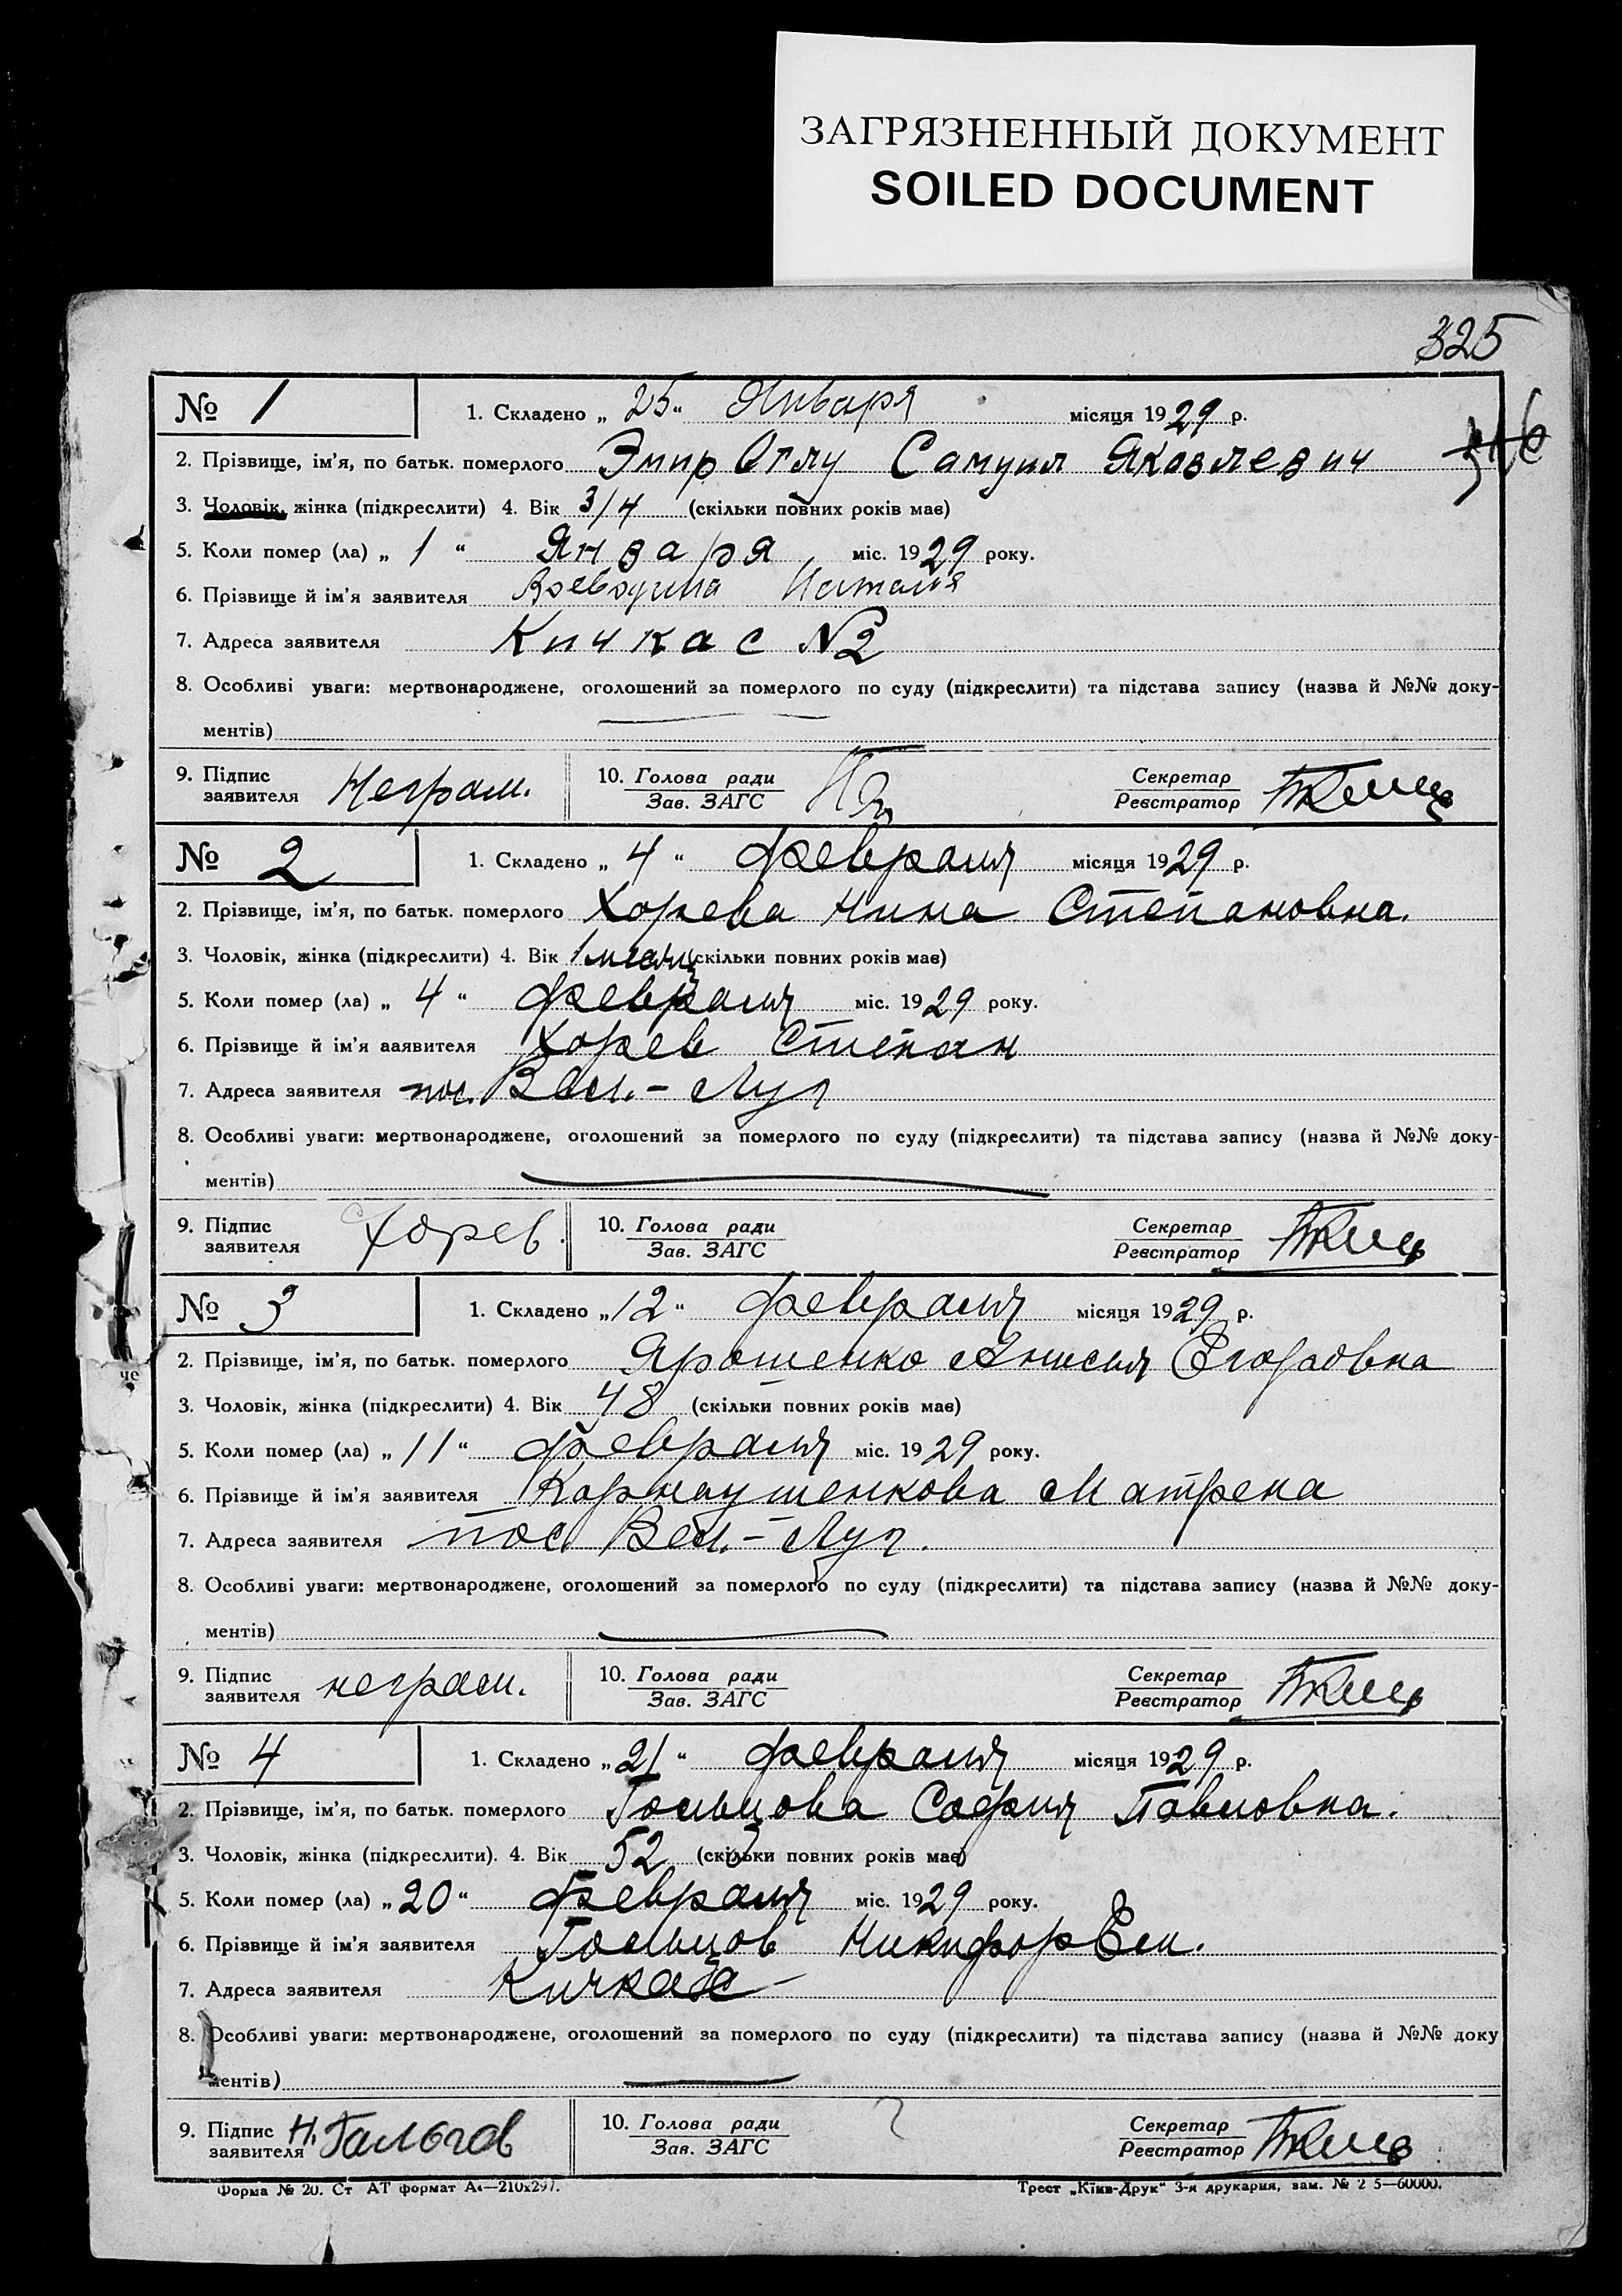 ЗАГРЯЗНЕННЫЙ ДОКУМЕНТ
SOILED DOCUMENT
325
№ 1 1. Складено „ 25 “ Января місяця 1929 р.
2. Прізвище, ім’я, по батьк. померлого Эмир Оглу Самуил Яковлевич
3. Чоловік, жінка (підкреслити) 4. Вік 3/4 (скільки повних років має)
5. Коли помер (ла) „ 1 “ Января міс. 1929 року.
6. Прізвище й ім’я заявителя Воеводина Наталия
7. Адреса заявителя Кичкас №2
8. Особливі уваги: мертвонароджене, оголошений за померлого по суду (підкреслити) та підстава запису (назва й №№ доку-
ментів)
9. Підпис заявителя Неграм. 10. Голова ради Зав. ЗАГС Секретар Реєстратор
№ 2 1. Складено „ 4 “ февраля місяця 1929 р.
2. Прізвище, ім’я, по батьк. померлого Хорева Нина Степановна.
3. Чоловік, жінка (підкреслити) 4. Вік 1 месяц (скільки повних років має)
5. Коли помер (ла) „ 4 “ февраля міс. 1929 року.
6. Прізвище й ім’я ааявителя Хорев Степан
7. Адреса заявителя пос. Вел.-Луг
8. Особливі уваги: мертвонароджене, оголошений за померлого по суду (підкреслити) та підстава запису (назва й №№ доку-
ментів)
9. Підпис заявителя Хорев. 10. Голова ради Зав. ЗАГС Секретар Реєстратор
№ 3 1. Складено „ 12 “ февраля місяця 1929 р.
2. Прізвище, ім’я, по батьк. померлого Ярошенко Анисья Егоровна
че
3. Чоловік, жінка (підкреслити) 4. Вік 48 (скільки повних років має)
5. Коли помер (ла) „ 11 “ февраля міс. 1929 року.
6. Прізвище й ім’я заявителя Карнаушенкова Матрена
7. Адреса заявителя пос Вел.-Луг.
8. Особливі уваги: мертвонароджене, оголошений за померлого по суду (підкреслити) та підстава запису (назва й №№ доку-
ментів)
9. Підпис заявителя неграм. 10. Голова ради Зав. ЗАГС Секретар Реєстратор
№ 4 1. Складено „ 21 “ февраля місяця 1929 р.
2. Прізвище, ім’я, по батьк. померлого Гольцова София Павловна.
3. Чоловік, жінка (підкреслити). 4. Вік 52 (скільки повних років має)
5. Коли помер (ла) „ 20 “ февраля міс. 1929 року.
6. Прізвище й ім’я заявителя Гольцов Никифор Ем.
7. Адреса заявителя Кичкас
8. Особливі уваги: мертвонароджене, оголошений за померлого по суду (підкреслити) та підстава запису (назва й №№ доку
ментів)
9. Підпис заявителя Н. 10. Голова ради Зав. ЗАГС Секретар Реєстратор
Форма № 20. Ст АТ формат А4—210х297. Трест „Київ-Друк“ 3-я друкарня, зам. № 2 5—60000.